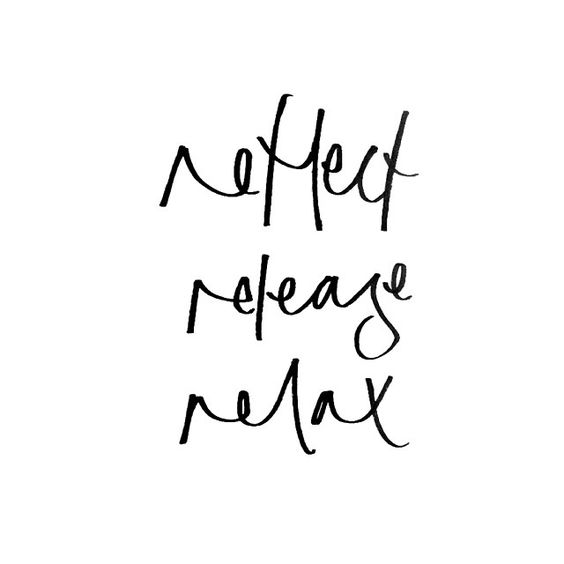 reflect
release
relax